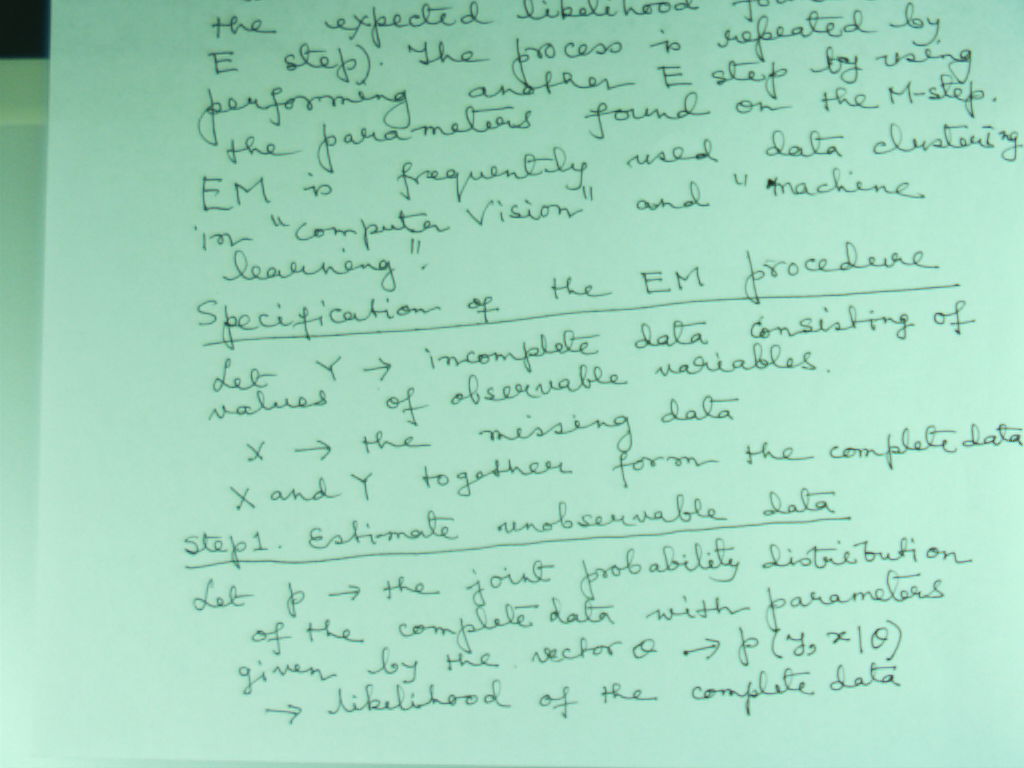 the expected likelihood
E step). The process is repeated by
performing another E step by using
the parameters found on the M-step.
EM is frequently used data clustering
in "computer Vision" and "machine
learning".
Specification of the EM procedure
Let Y → incomplete data consisting of
values of observable variables.
X → the missing data
X and Y together form the complete data
Step1. Estimate unobservable data
Let p → the joint probability distribution
of the complete data with parameters
given by the vector θ → p(y, x|θ)
→ likelihood of the complete data